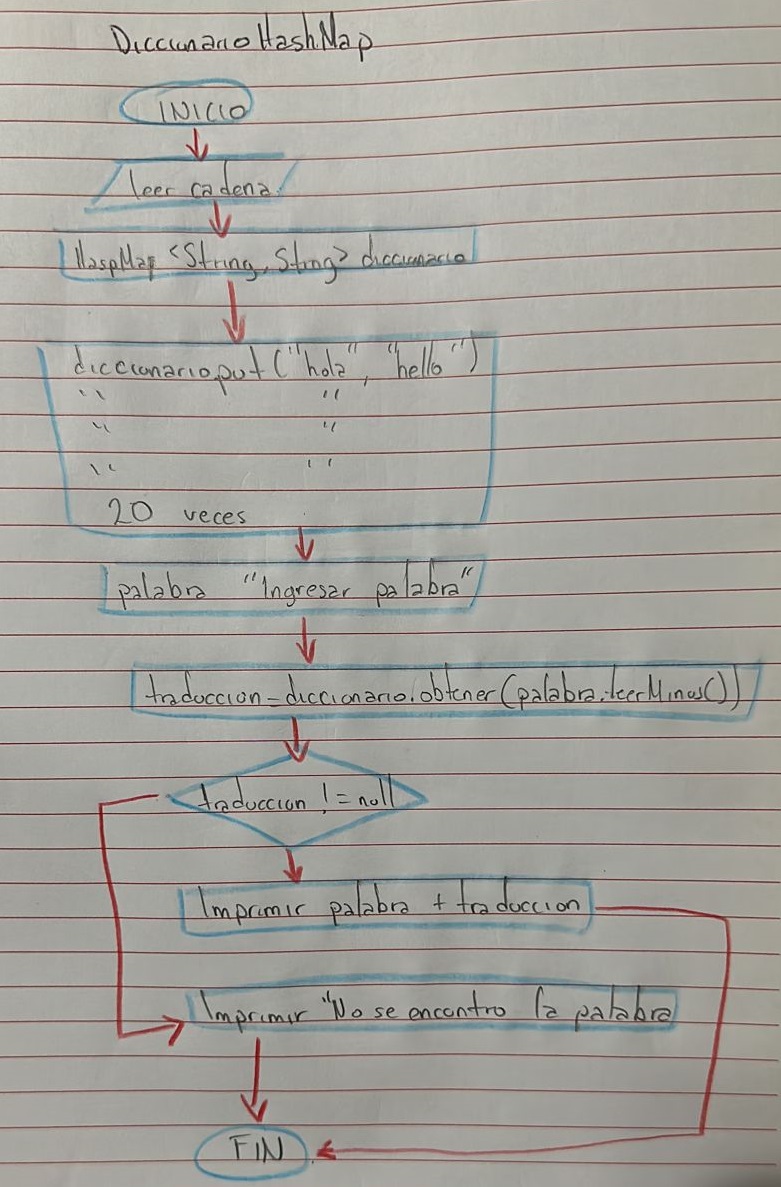 Diccionario HashMap
INICIO
leer cadena
HaspMap <String, String> diccionario
diccionario.put ("hola", "hello")
" "
" "
" "
20 veces
palabra "Ingresar palabra"
traduccion = diccionario.obtener(palabra.leerMinus())
traduccion != null
Imprimir palabra + traduccion
Imprimir "No se encontro la palabra
FIN